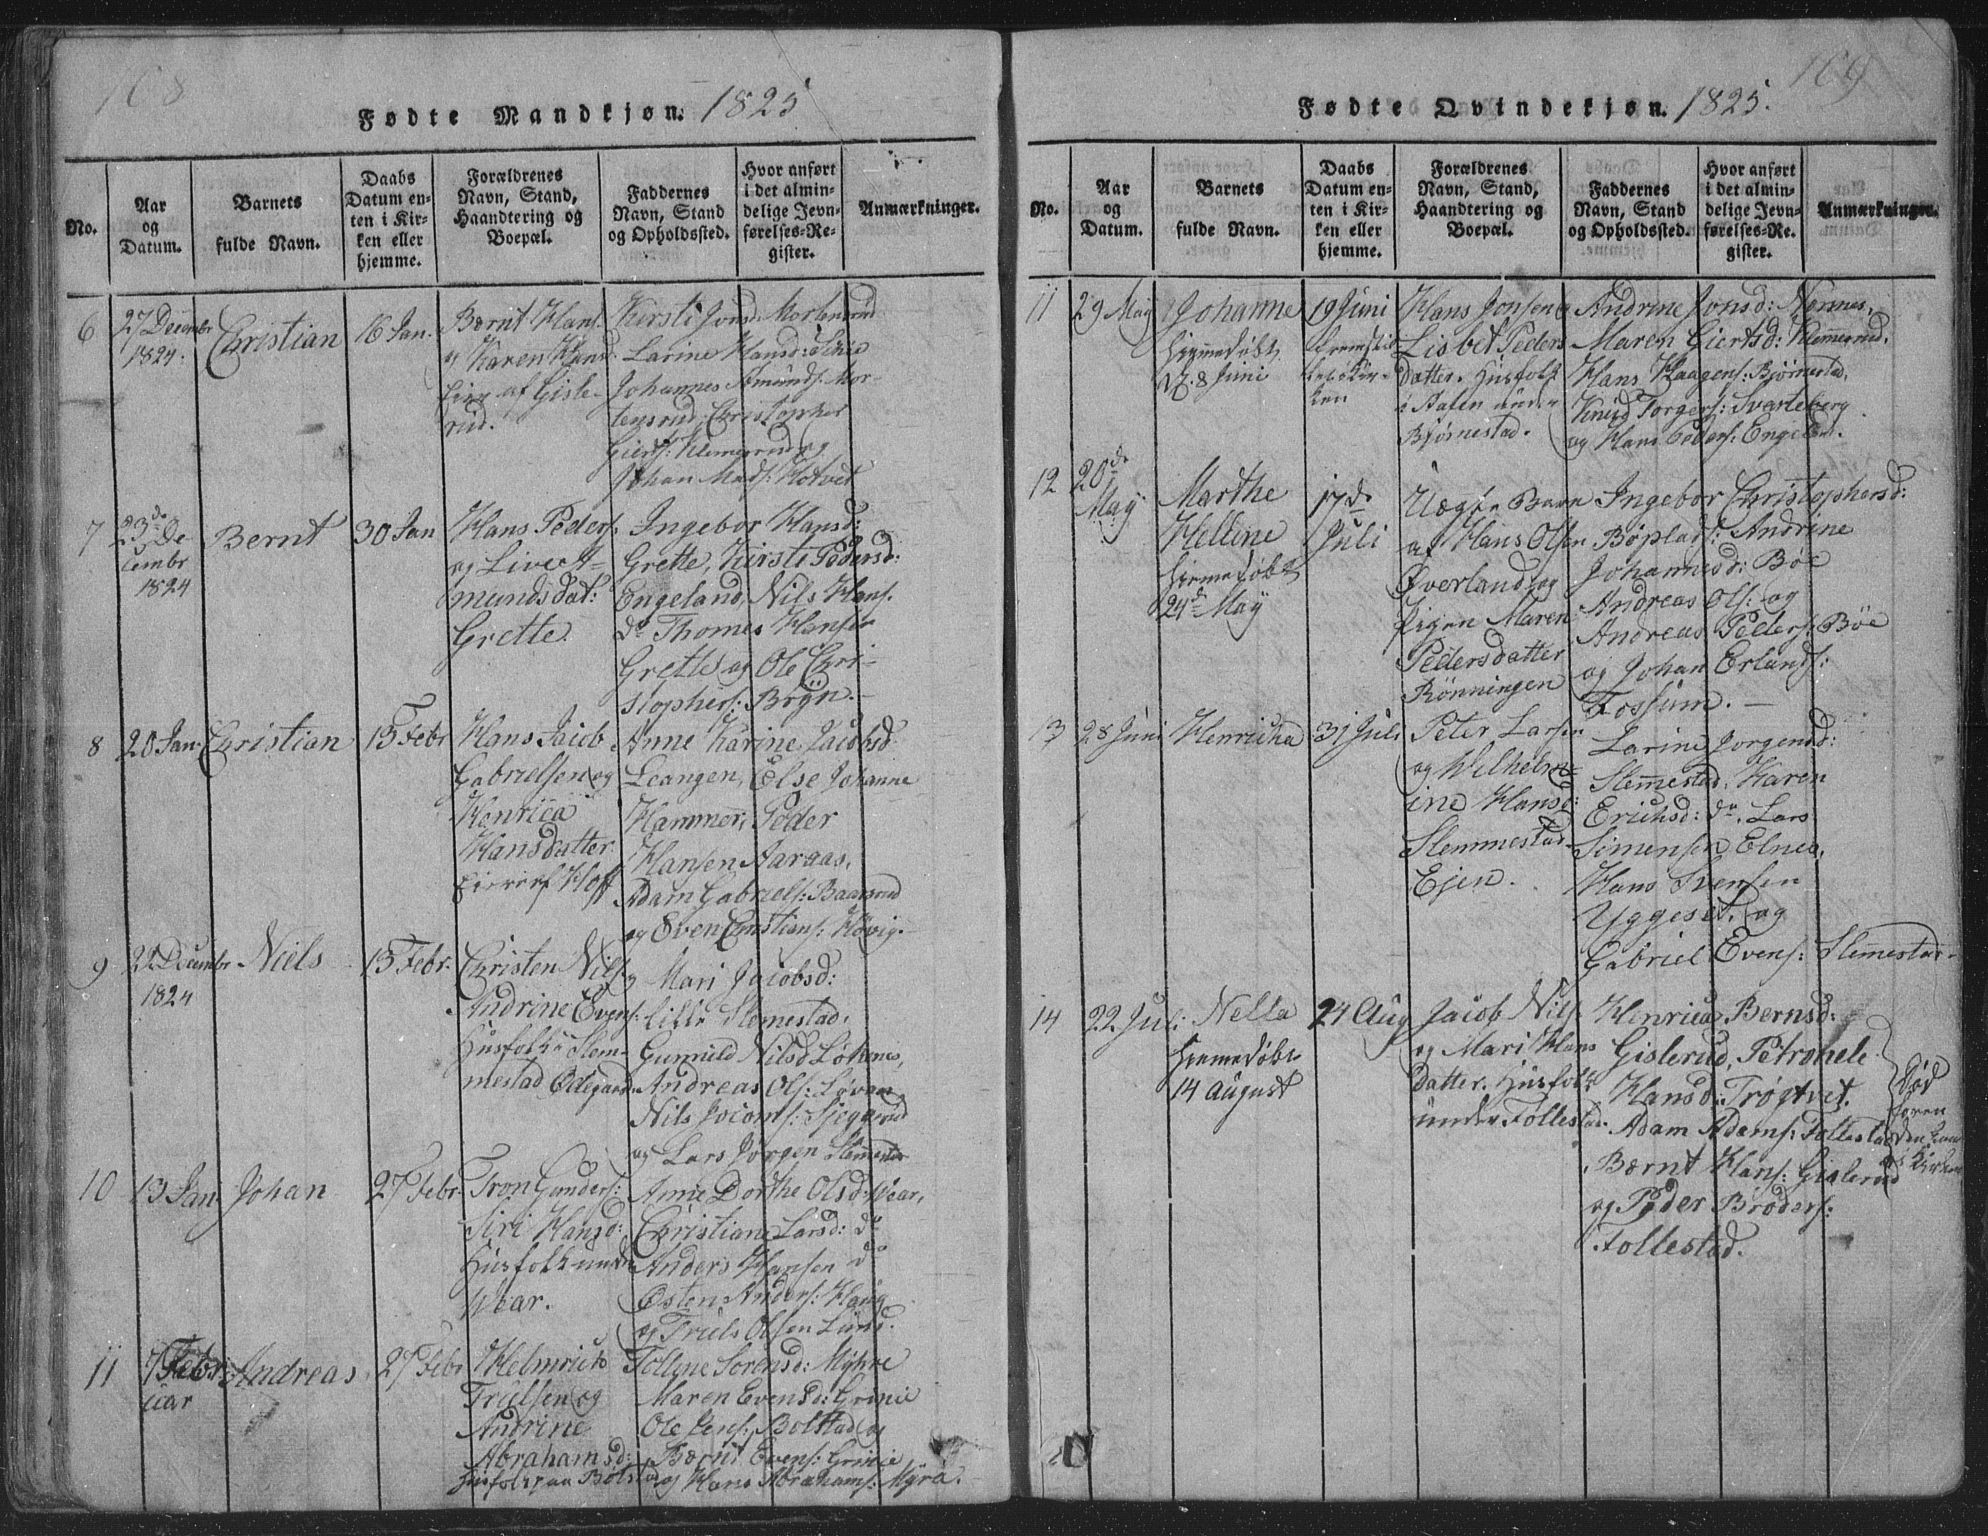 108
Fødte Mandkjøn. 1825
No.
Aar
og
Datum.
Barnets
fulde Navn.
Daabs
Datum en-
ten i Kir-
ken eller
hjemme.
Forældrenes
Navn, Stand,
Haandtering og
Boepæl.
Faddernes
Navn, Stand
og Opholdssted.
Hvor anført
i det almin-
delige Jevn-
førelses-Re-
gister.
Anmærkninger.
6
27 Decembr
1824.
Christian
16 Jan.
Bernt Hans.
og Karen Hansd.
af Gisle-
rud.
Kirsti Jonsd. Mortensrud
Larine Hansd:
Johannes Amunds. Mor-
tensrud, Christopher
Gierts: Klemmerud og
Johan Mads. Hotvet
7
23de De-
cembr
1824
Bernt
30 Jan
Hans Peders.
og Live A-
mundsdat:
Grette.
Ingebor Hansd:
Grette, Kirsti Pedersd:
Engeland, Nils Hans.
do Thomes Hansen
Grette og Ole Chri-
stophers: Bryn.
8
20 Jan.
Christian
13 Febr
Hans Jacob
Gabrielsen og
Henrica
Hansdatter
Eiere af Hoff
Anne Karine Jacobsd.
Leangen, Else Johanne
Hammer, Peder
Hansen Aaraas,
Adam Gabriels: Baarsrud
og Even Christians: Høvig.
9
22 Decembr
1824
Niels
13 Febr.
Christen Nils.
Andrine Evens.
Husfolk Slem-
mestad Ødegaard
Mari Jacobsd:
Lille Slemestad.
Gunnild Nilsd Løkenes,
Andreas Ols:
Nils Jocoms:
og Lars Jørgen Slemestad
10
13 Jan
Johan
27 Febr.
Tron Gunders:
Siri Hansd:
Husfolk under
Wear.
Anne Dorthe Olsd: Wear,
Christiane Larsd: do
Anders Hansen do
Østen Anders: Haug
og Truls Olsen Lund.
11
7 Febr
uar
Andreas
27 Febr
Helmrich
Trulsen og
Andrine
Abrahamsd:
Husfolk paa Bølstad
Tolline Sorensd: Myhre
Maren Evensd: Grinie
Ole Jens: Bolstad og
Bernt Evens: Grinie
og Hans Abrahams: Myra.
169
Fødte Qvindekjøn. 1825.
No.
Aar
og
Datum.
Barnets
fulde Navn.
Daabs
Datum en-
ten i Kir-
ken eller
hjemme.
Forældrenes
Navn, Stand,
Haandtering og
Boepæl.
Faddernes
Navn, Stand
og Opholdssted.
Hvor anført
i det almin-
delige Jevn-
førelses-Re-
gister.
Anmærkninger.
11
29 May
Johanne
Hiemedøbt
d. 8 Juni
19 Juni
fremstil
let i Kir-
ken
Hans Jonsen og
Lisbet Peders
datter. Husfolk
i Aasen under
Bjørnestad.
Andrine Jonsd: Nernes,
Maren Giertsd: Klemmerud.
Hans Haagens: Bjørnestad,
Knud Torgers: Svarteberg
og Hans Peders: Engelan.
12
20de
May
Marthe
Helline
Hiemedøbt
24de May
17de
Juli
Uægte Barn
af Hans Olsen
Øverland og
Pigen Maren
Pedersdatter
Rönningen
Ingebor Christophersd:
Bøplads: Andrine
Johannesd: Böe
Andreas Ols: og
Andreas Peders: Böe
og Johan Erlands:
Fossum.
13
28 Juni
Henricha
31 Juli
Peter Larsen
og Wilhelm-
ine Hansd:
Slemmestad
Ejen.
Larine Jorgensd:
Slemestad, Karen
Erichsd: do, Lars
Simensen Elnes,
Hans Svensen
Yggeset, og
Gabriel Evens: Slemestad
14
22 Juli
Nella
Hiemedøbt
14 August
24 Aug
Jacob Nils.
og Mari Hans
datter. Husfolk
under Follestad.
Henrica Bernsd:
Gislerud, Petronele
Hansd: Trøgtvet.
Adam Adams: Follestad
Bernt Hans: Gislerud
og Peder Broders:
Follestad.
Død
foren
den kom
i Kirken